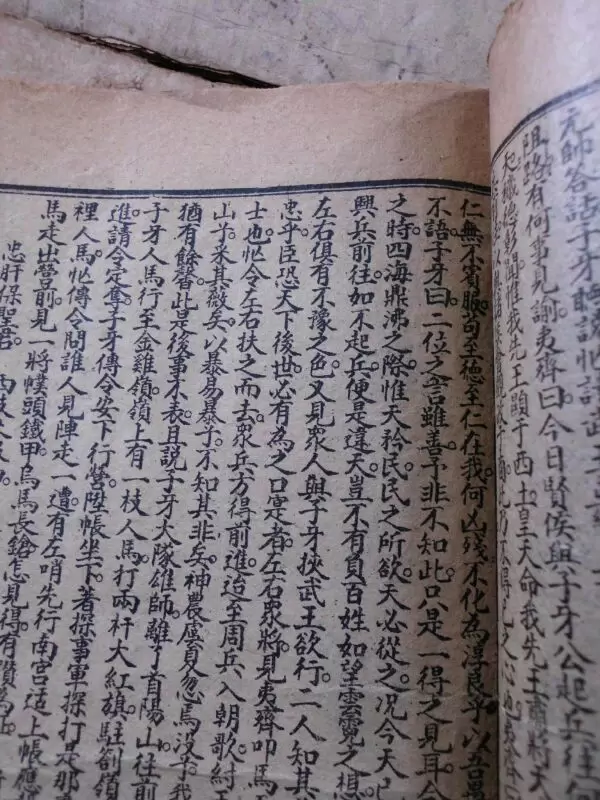 元帥答話子牙聽說忙請武王
阻路有何事見諭夷齊曰今日賢侯與子牙公起兵往何
德彰聞惟我先王顯于西土皇天命我先王肅將天
仁無不賓服苟至德至仁在我何凶殘不化為淳良乎以吾萬
不語子牙曰二位之言雖善予非不知此只是一得之見耳今
之時四海鼎沸之際惟天矜民民之所欲天必從之況今天已
興兵前往如不起兵便是違天豈不有負百姓如望雲霓之想
左右俱有不豫之色又見眾人與子牙挾武王欲行二人知其
忠乎臣恐天下後世必有為之口實者左右眾將見夷齊叩馬
士也忙令左右扶之而去眾兵方得前進迨至周兵入朝歌紂王
山兮采其薇矣以暴易暴兮不知其非矣神農虞夏忽焉沒兮我
猶有餘馨此是後事不表且說子牙大隊雄師離了首陽山往前
子牙人馬行至金雞嶺嶺上有一枝人馬打兩杆大紅旗駐劄嶺
進請令定奪子牙傳令安下行營陞帳坐下著探事軍探打是那
裡人馬忙傳令問誰人見陣走一遭有左哨先行南宮适上帳應
馬走出營前見一將幞頭鐵甲烏馬長鎗怎見得有讚為
忠肝保聖君